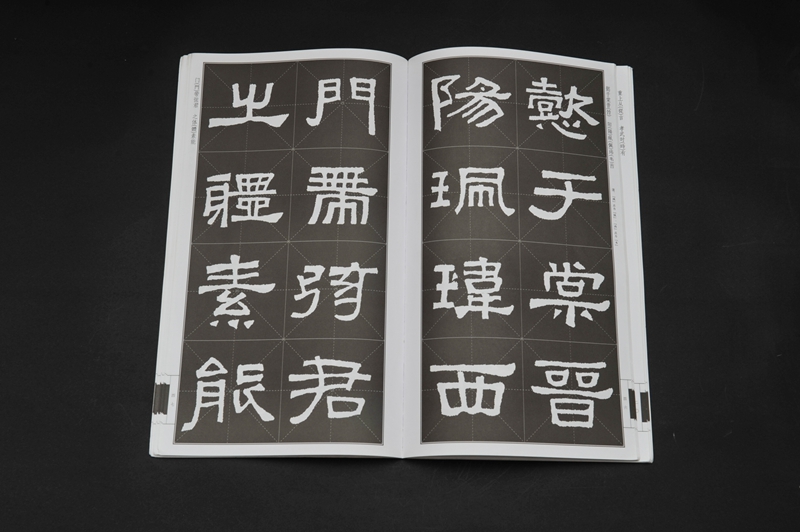 懿于棠晉
陽珮瑋西
門帶弦君
之體素能